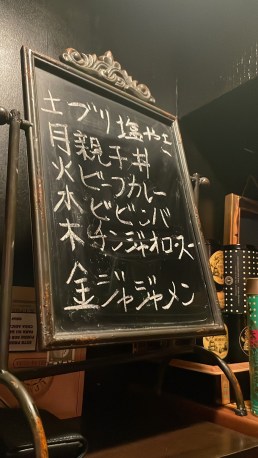 土ブリ塩やき
月親子丼
火ビーフカレー
水ビビンバ
木チンジャオロース
金ジャジャメン